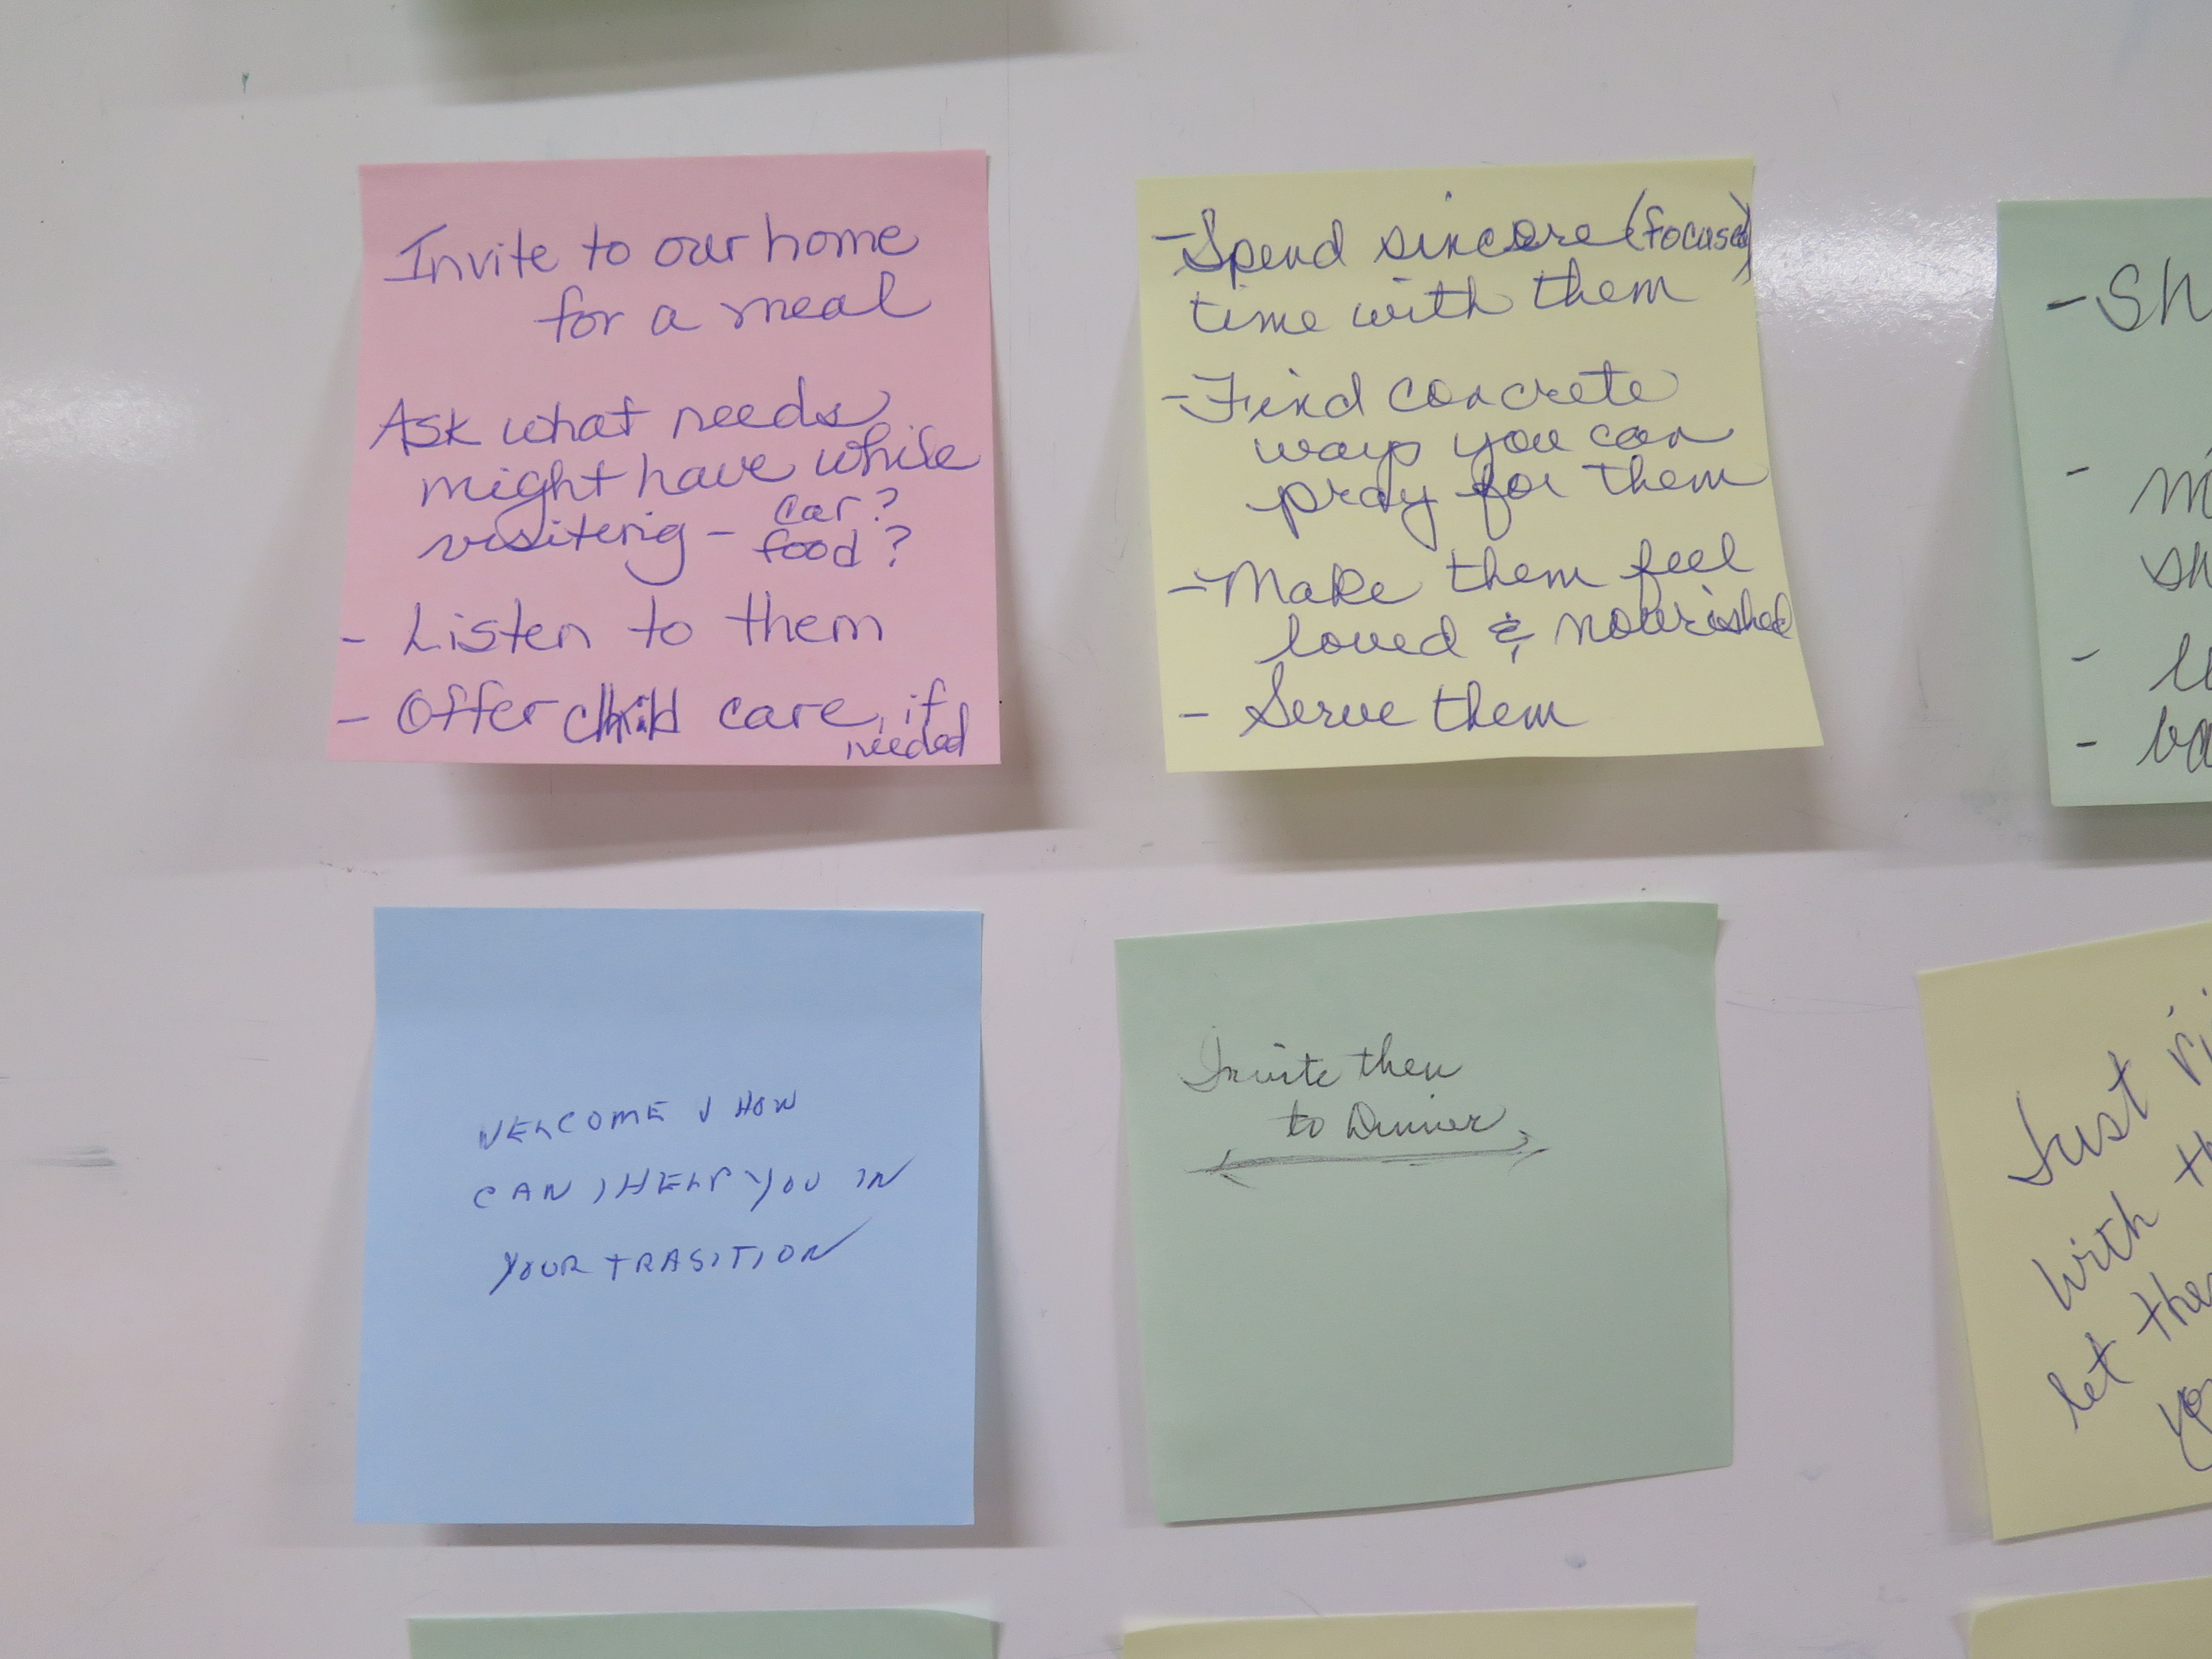 Invite to our home
for a meal
Ask what needs
might have while
visitering - car?
food?
- Listen to them
- Offer child care, if
needed
- Spend sincere (focused)
time with them
- Find concrete
ways you can
pray for them
- Make them feel
loved & nourished
- Serve them
- Sh
-
sh
-
-
WELCOME & HOW
CAN I HELP YOU IN
YOUR TRASITION
Invite them
to Dinner
Just
with th
let the
yo